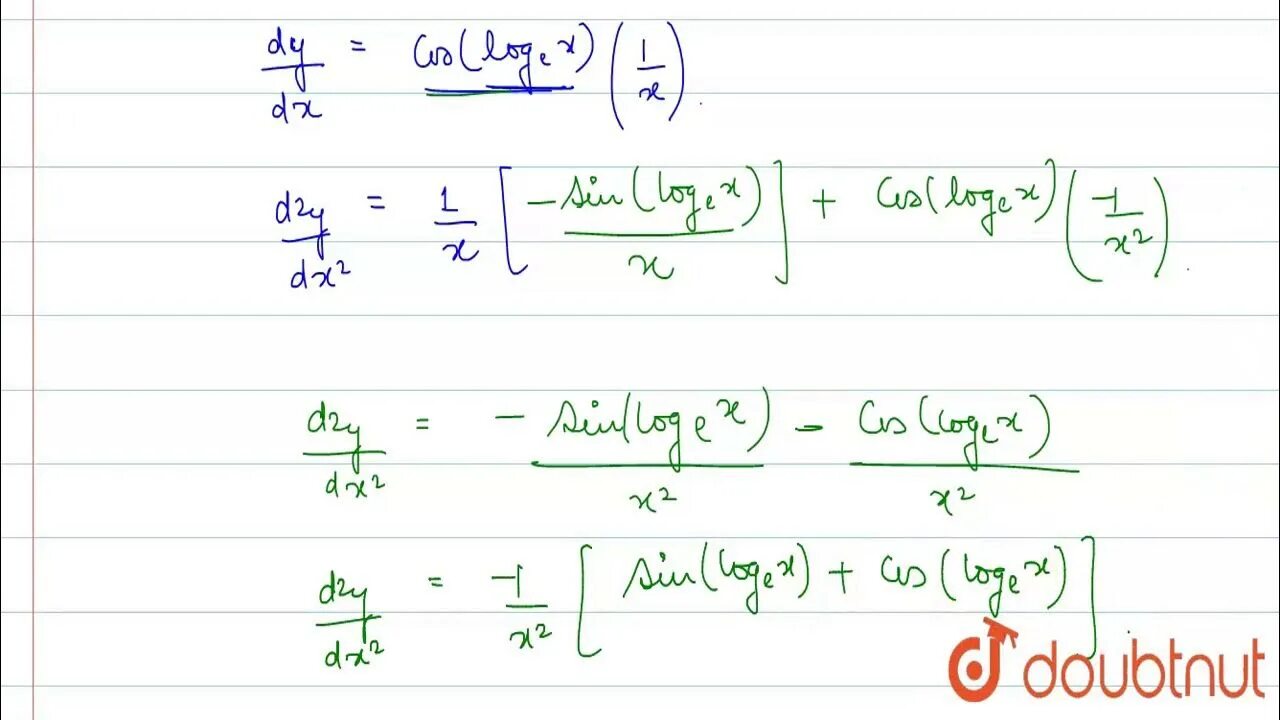 dy/dx = cos(logₑx) (1/x).
d2y/dx² = 1/x [-sin(logₑx)/x] + cos(logₑx) (-1/x²).
d2y/dx² = -sin(logₑx)/x² - cos(logₑx)/x²
d2y/dx² = -1/x² [sin(logₑx) + cos(logₑx)].
doubtnut